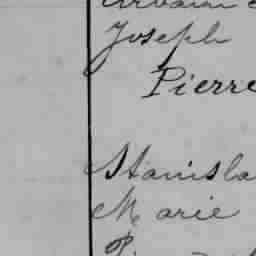 Joseph
Pierre
Stanisla
Marie